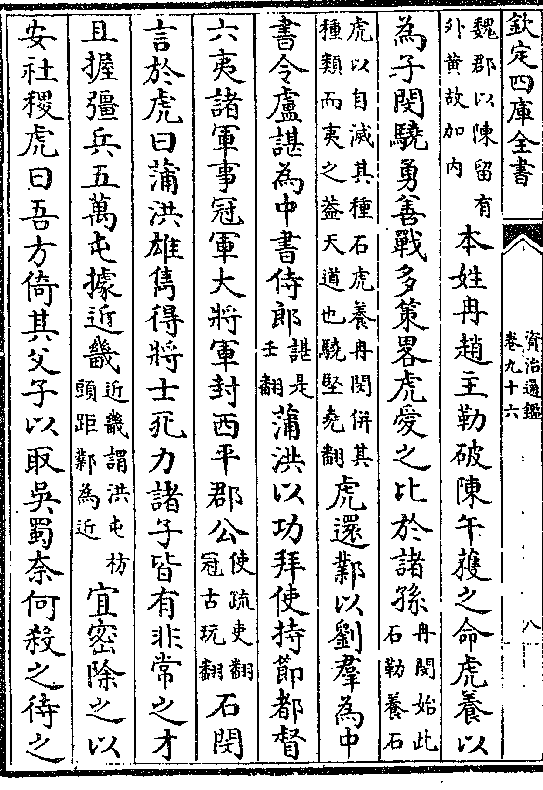 欽定四庫全書
資治通鑑
卷九十六
八
魏郡以陳留有
外黄故加内
本姓冉趙主勒破陳午獲之命虎養以
為子閔驍勇善戰多策畧虎愛之比於諸孫
冉閔始此
石勒養石
虎以自滅其種石虎養冉閔併其
種類而夷之葢天道也驍堅堯翻
虎還鄴以劉羣為中
書令盧諶為中書侍郎
諶是
壬翻
蒲洪以功拜使持節都督
六夷諸軍事冠軍大將軍封西平郡公
使疏吏翻
冠古玩翻
石閔
言於虎曰蒲洪雄雋得將士死力諸子皆有非常之才
且握彊兵五萬屯據近畿
近畿謂洪屯枋
頭距鄴為近
宜密除之以
安社稷虎曰吾方倚其父子以取吳蜀奈何殺之待之